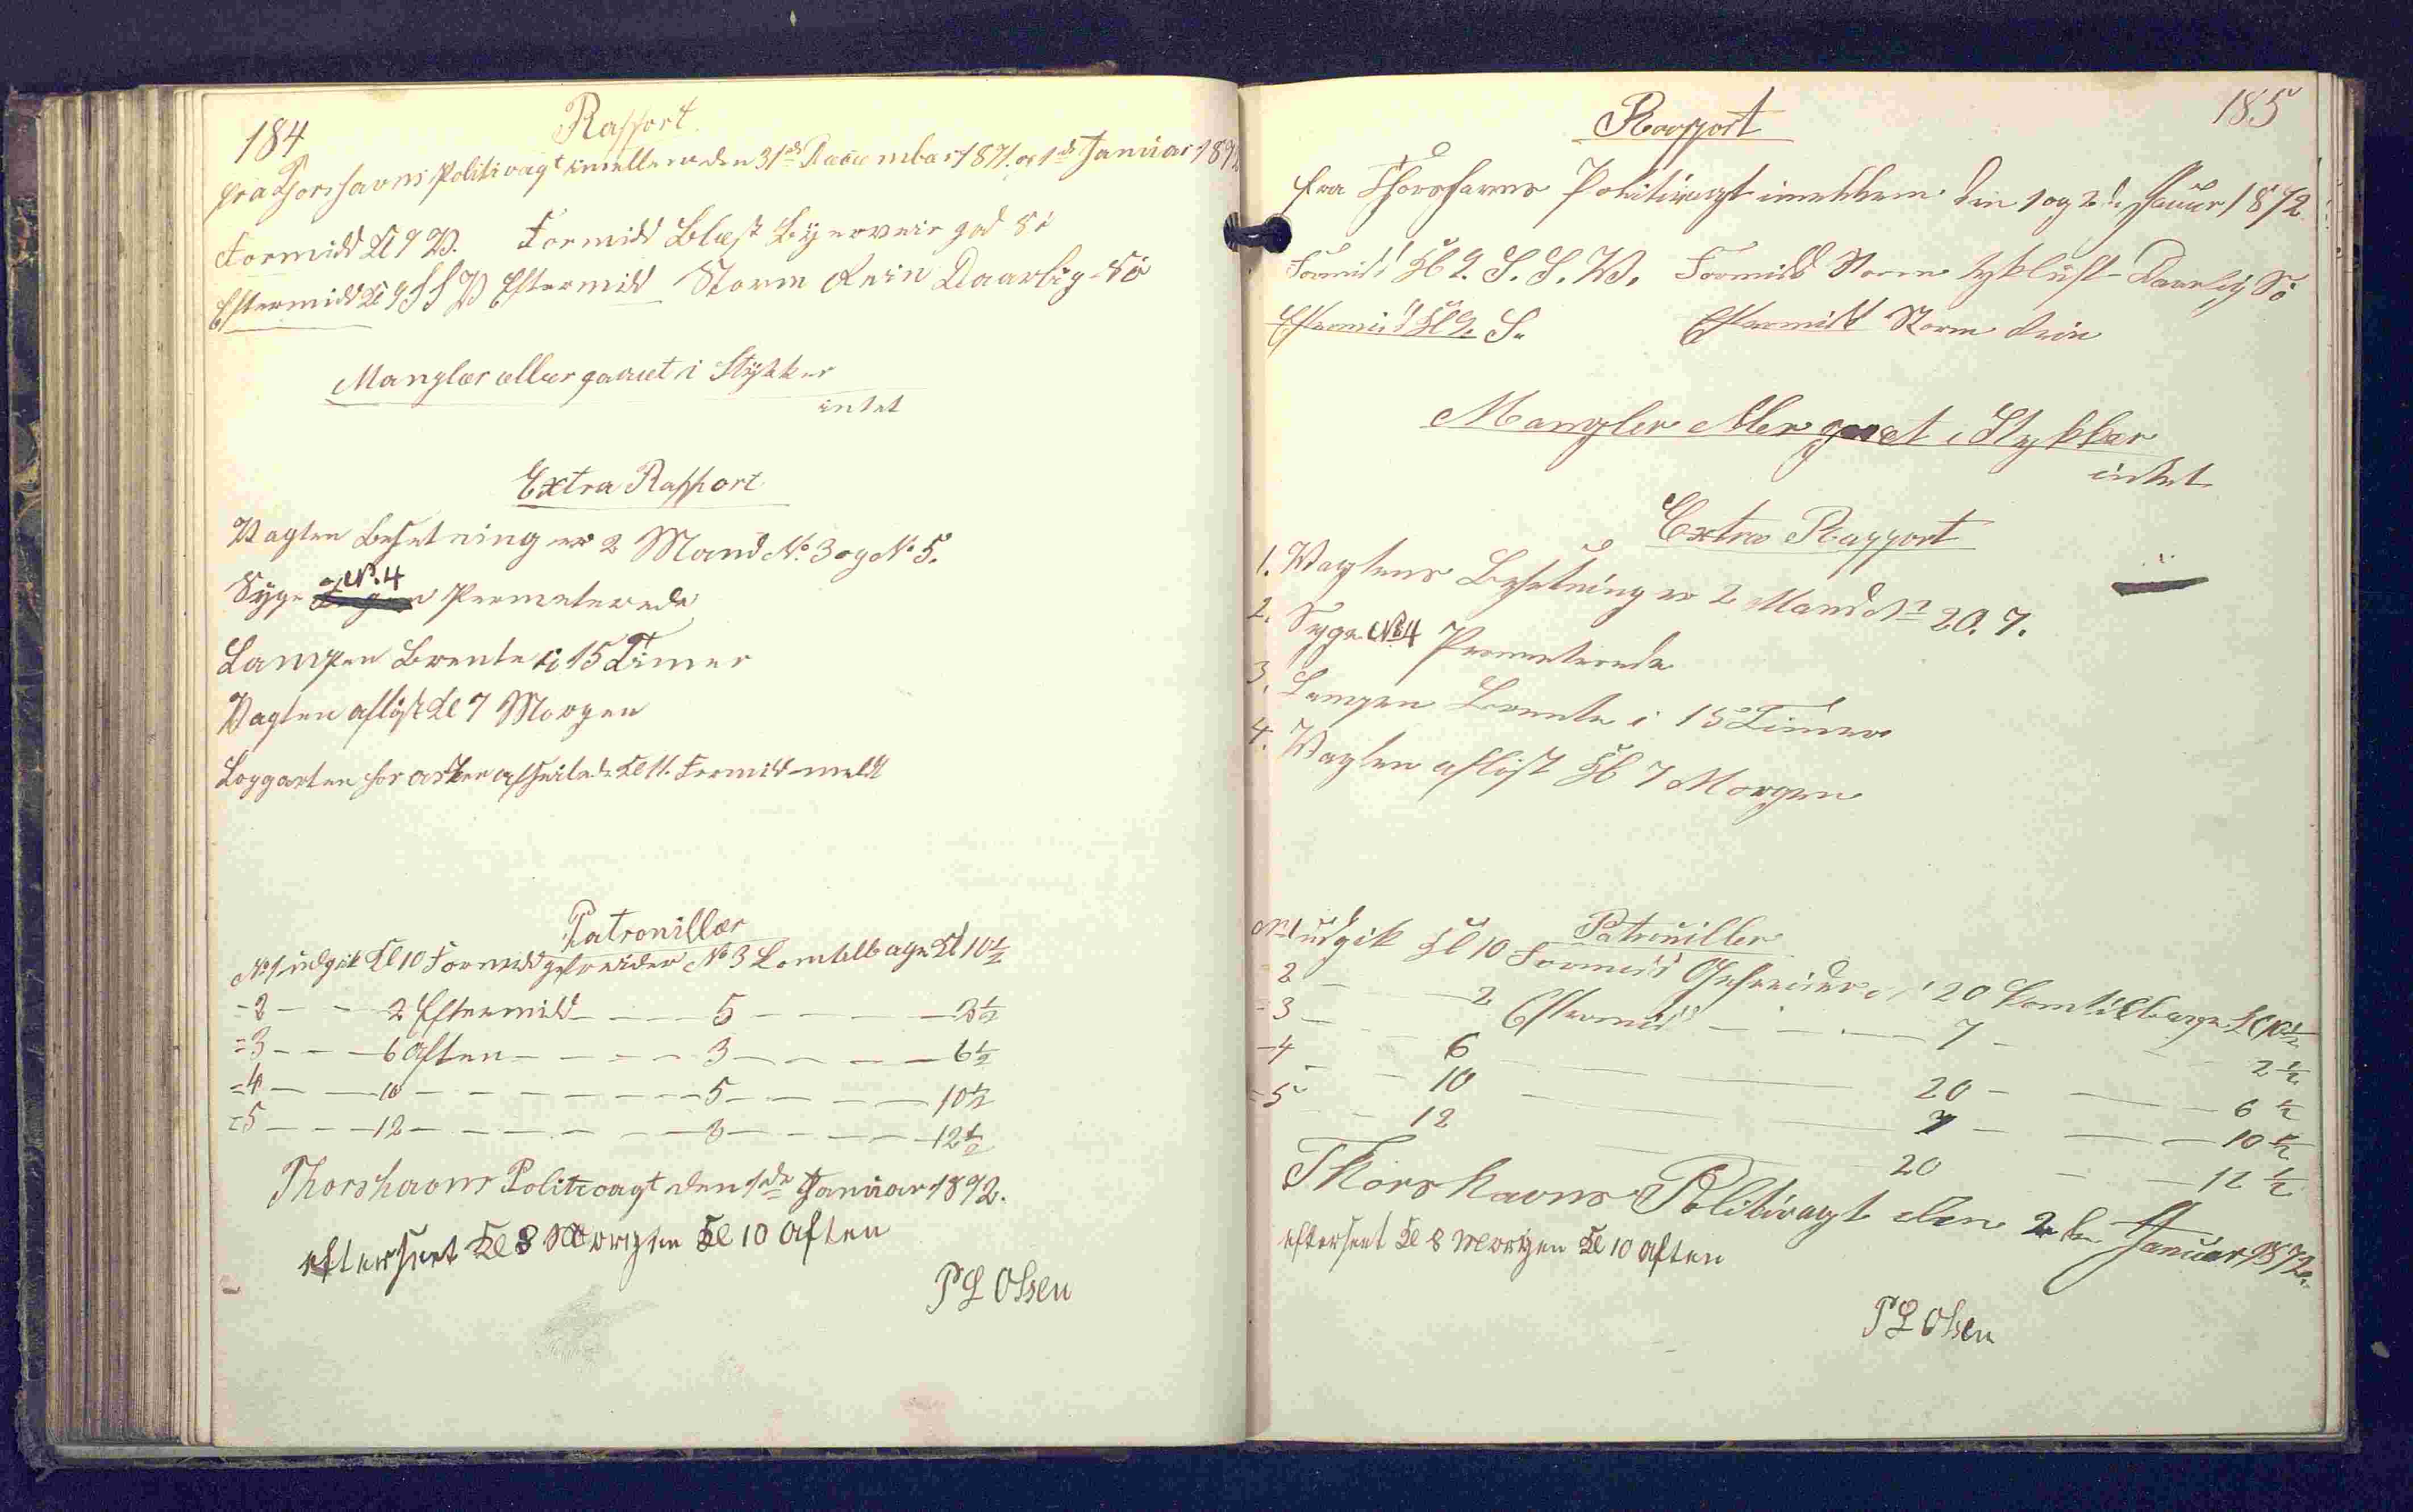 184
Rapport
fra Thorshavns Politivagt imellem den 31de December 1871 og 1de Januar 1872
Formidd Kl 9 V. Formidd Blæst Byerveir god Sö
Eftermidd Kl 9 SSV Eftermidd Storm Rein Daarlig Sö
Mangler eller gaaet i Stykker
intet
Extra Rapport
Vagten Besetning er 2 Mand No. 3 og No 5.
Syge No. 4 Permeterede
Lampen Brente i 15 Timer
Vagten aflöst Kl 7 Morgen
Kl 11. Formidd meldt
Patrouiller
No 1 udgik Kl 10 Formidd gefreider No 3 kom tilbage Kl 10 1/2
- 2 - - 2 Eftermidd - - - 5 - - - - 2 1/2
= 3 - - - 6 Aften - - - - 3 - - - - 6 1/2
= 4 - - 10 - - - - - - 5 - - - - 10 1/2
= 5 - - - 12 - - - - - - 3 - - - - 12 1/2
Thorshavns Politivagt den 1de Januar 1872.
efterseet Kl 8 Morgen Kl 10 Aften
P L Olsen
185
Rapport
fra Thorshavns Politivagt imellem den 1 og 2de Januar 1872
Formidd Kl 9. S. S. V. Formidd Storm tykluft Daarlig Sö
Eftermidd Kl 9. S. Eftermidd Storm Rein
Mangler eller gaaet i Stykker
intet
Extra Rapport
1. Vagtens Besetning er 2 Mand No 20. 7.
2. Syge No 4 Permeterede
3. Lampen Brente i 15 Timer
4. Vagten aflöst Kl 7 Morgen
Patrouiller
No 1 udgik Kl 10 Formidd Gefreider No 20 kom tilbage Kl 10 1/2
2 - - 2 Eftermidd - - - 7 - - - 2 1/2
= 3 - - - 6 - - - 20 - - - 6 1/2
- 4 - - 10 - - - 7 - - - 10 1/2
= 5 - - - 12 - - - 20 - - - 12 1/2
Thorshavns Politivagt den 2de Januar 1872.
efterseet Kl 8 Morgen Kl 10 Aften
P L Olsen